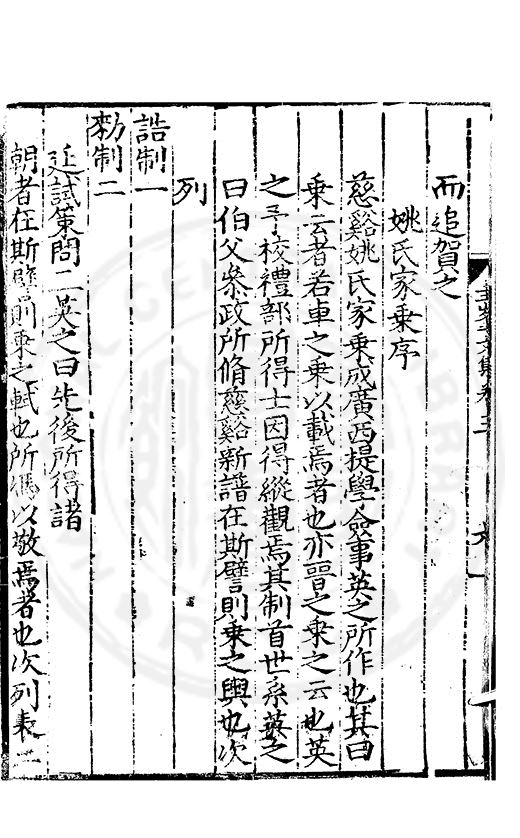 而追賀之
姚氏家乗序
慈谿姚氏家乗成廣西提學僉事英之所作也其曰
乗云者若車之乗以載焉者也亦晉之乗之云也英
之予校禮部所得士因得縱觀焉其制首世系英之
曰伯父叅政所脩慈谿新譜在斯譬則乗之輿也次
列
誥制一
勑制二
廷試策問二英之曰先後所得諸
朝者在斯譬則乗之軾也所馮以敬焉者也次列表二